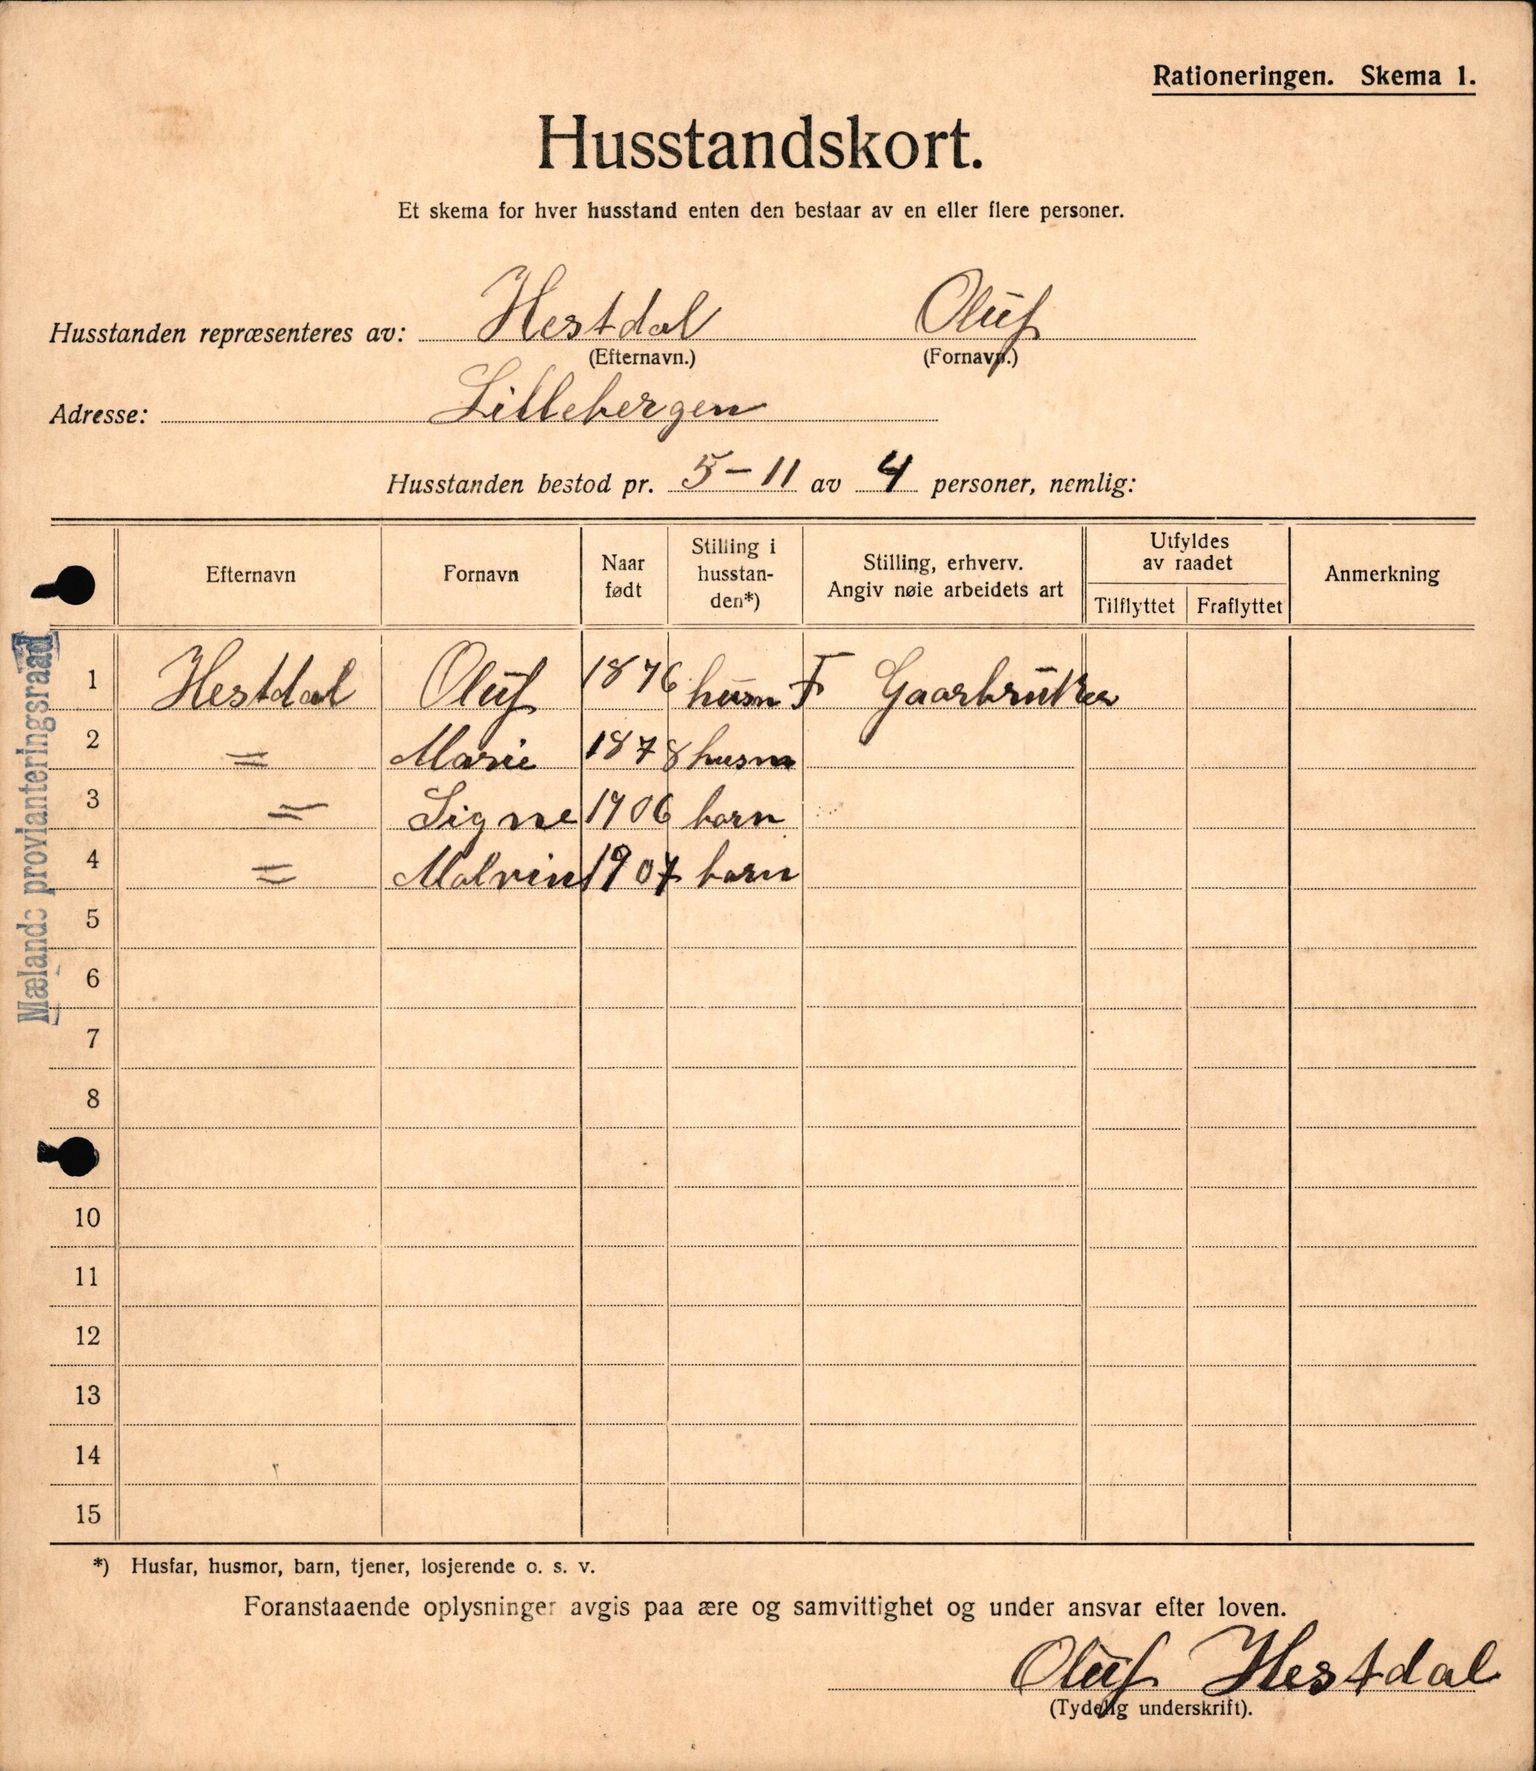 Rationeringen. Skema 1.
Husstandskort.
Et skema for hver husstand enten den bestaar av en eller flere personer.
Husstanden repræsenteres av: Hestdal Oluf
(Efternavn.) (Fornavn.)
Adresse: Lillebergen
Husstanden bestod pr. 5-11 av 4 personer, nemlig:
Efternavn Fornavn Naar født Stilling i husstan-den*) Stilling, erhverv. Angiv nøie arbeidets art Utfyldes av raadet Tilflyttet Fraflyttet Anmerkning
1 Hestdal Oluf 1876 husn F Gaarbruker
2 = Marie 1878 husm
3 = Signe 1906 barn
4 = Malvin 1907 barn
5
6
7
8
10
11
12
13
14
15
Mælands provianteringsraad
*) Husfar, husmor, barn, tjener, losjerende o. s. v.
Foranstaaende oplysninger avgis paa ære og samvittighet og under ansvar efter loven.
Oluf Hestdal
(Tydelig underskrift).